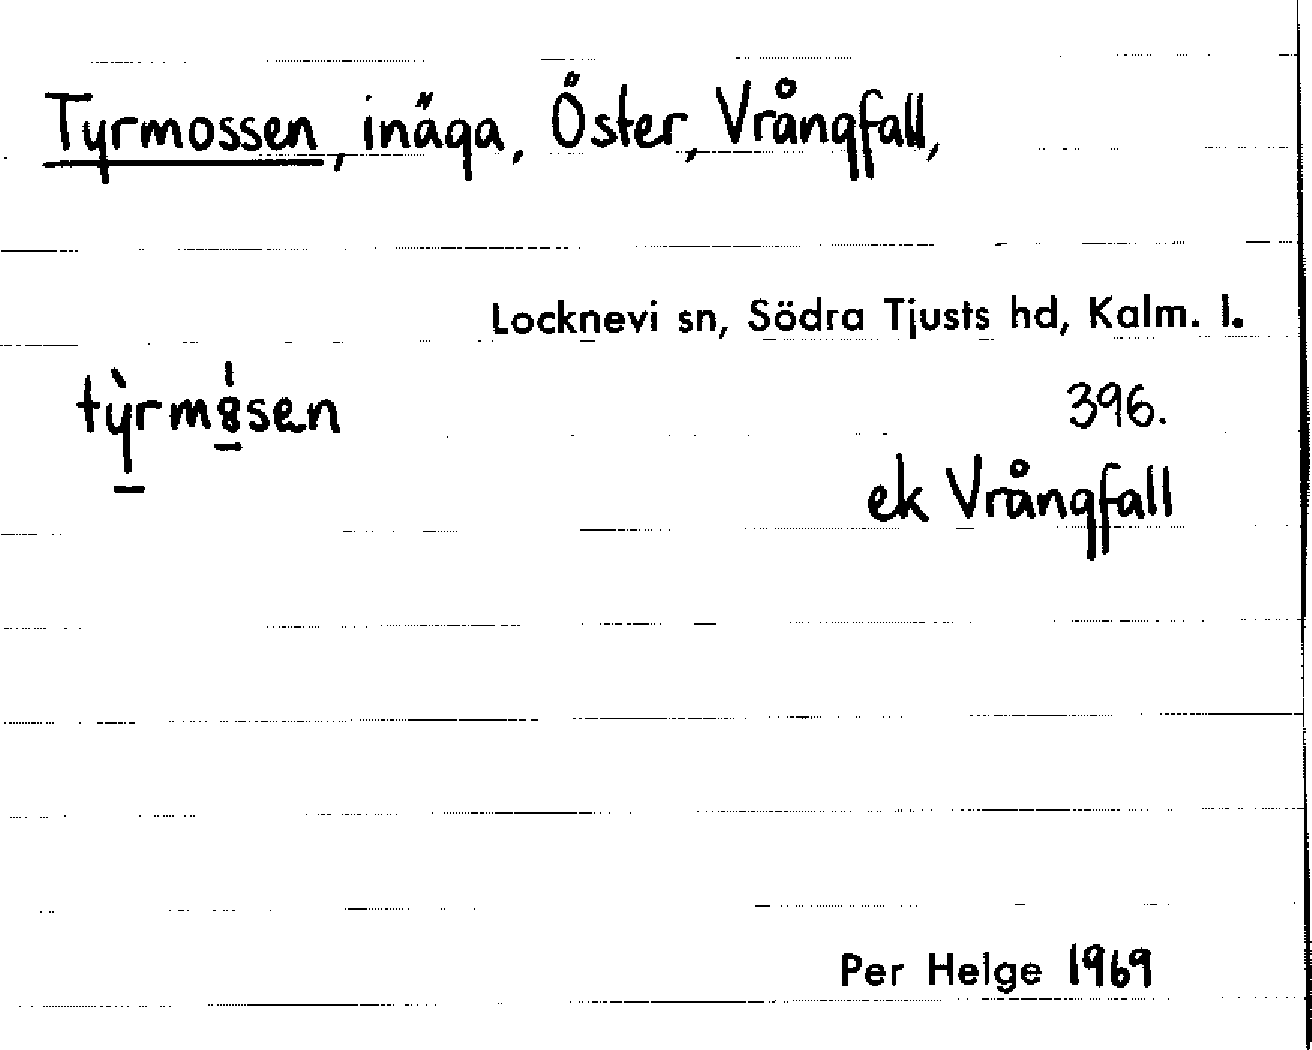 Tyrmossen, inäga, Öster, Vrångfall,
Locknevi sn, Södra Tjusts hd, Kalm. l.
396.
ek Vrångfall
Per Helge 1969